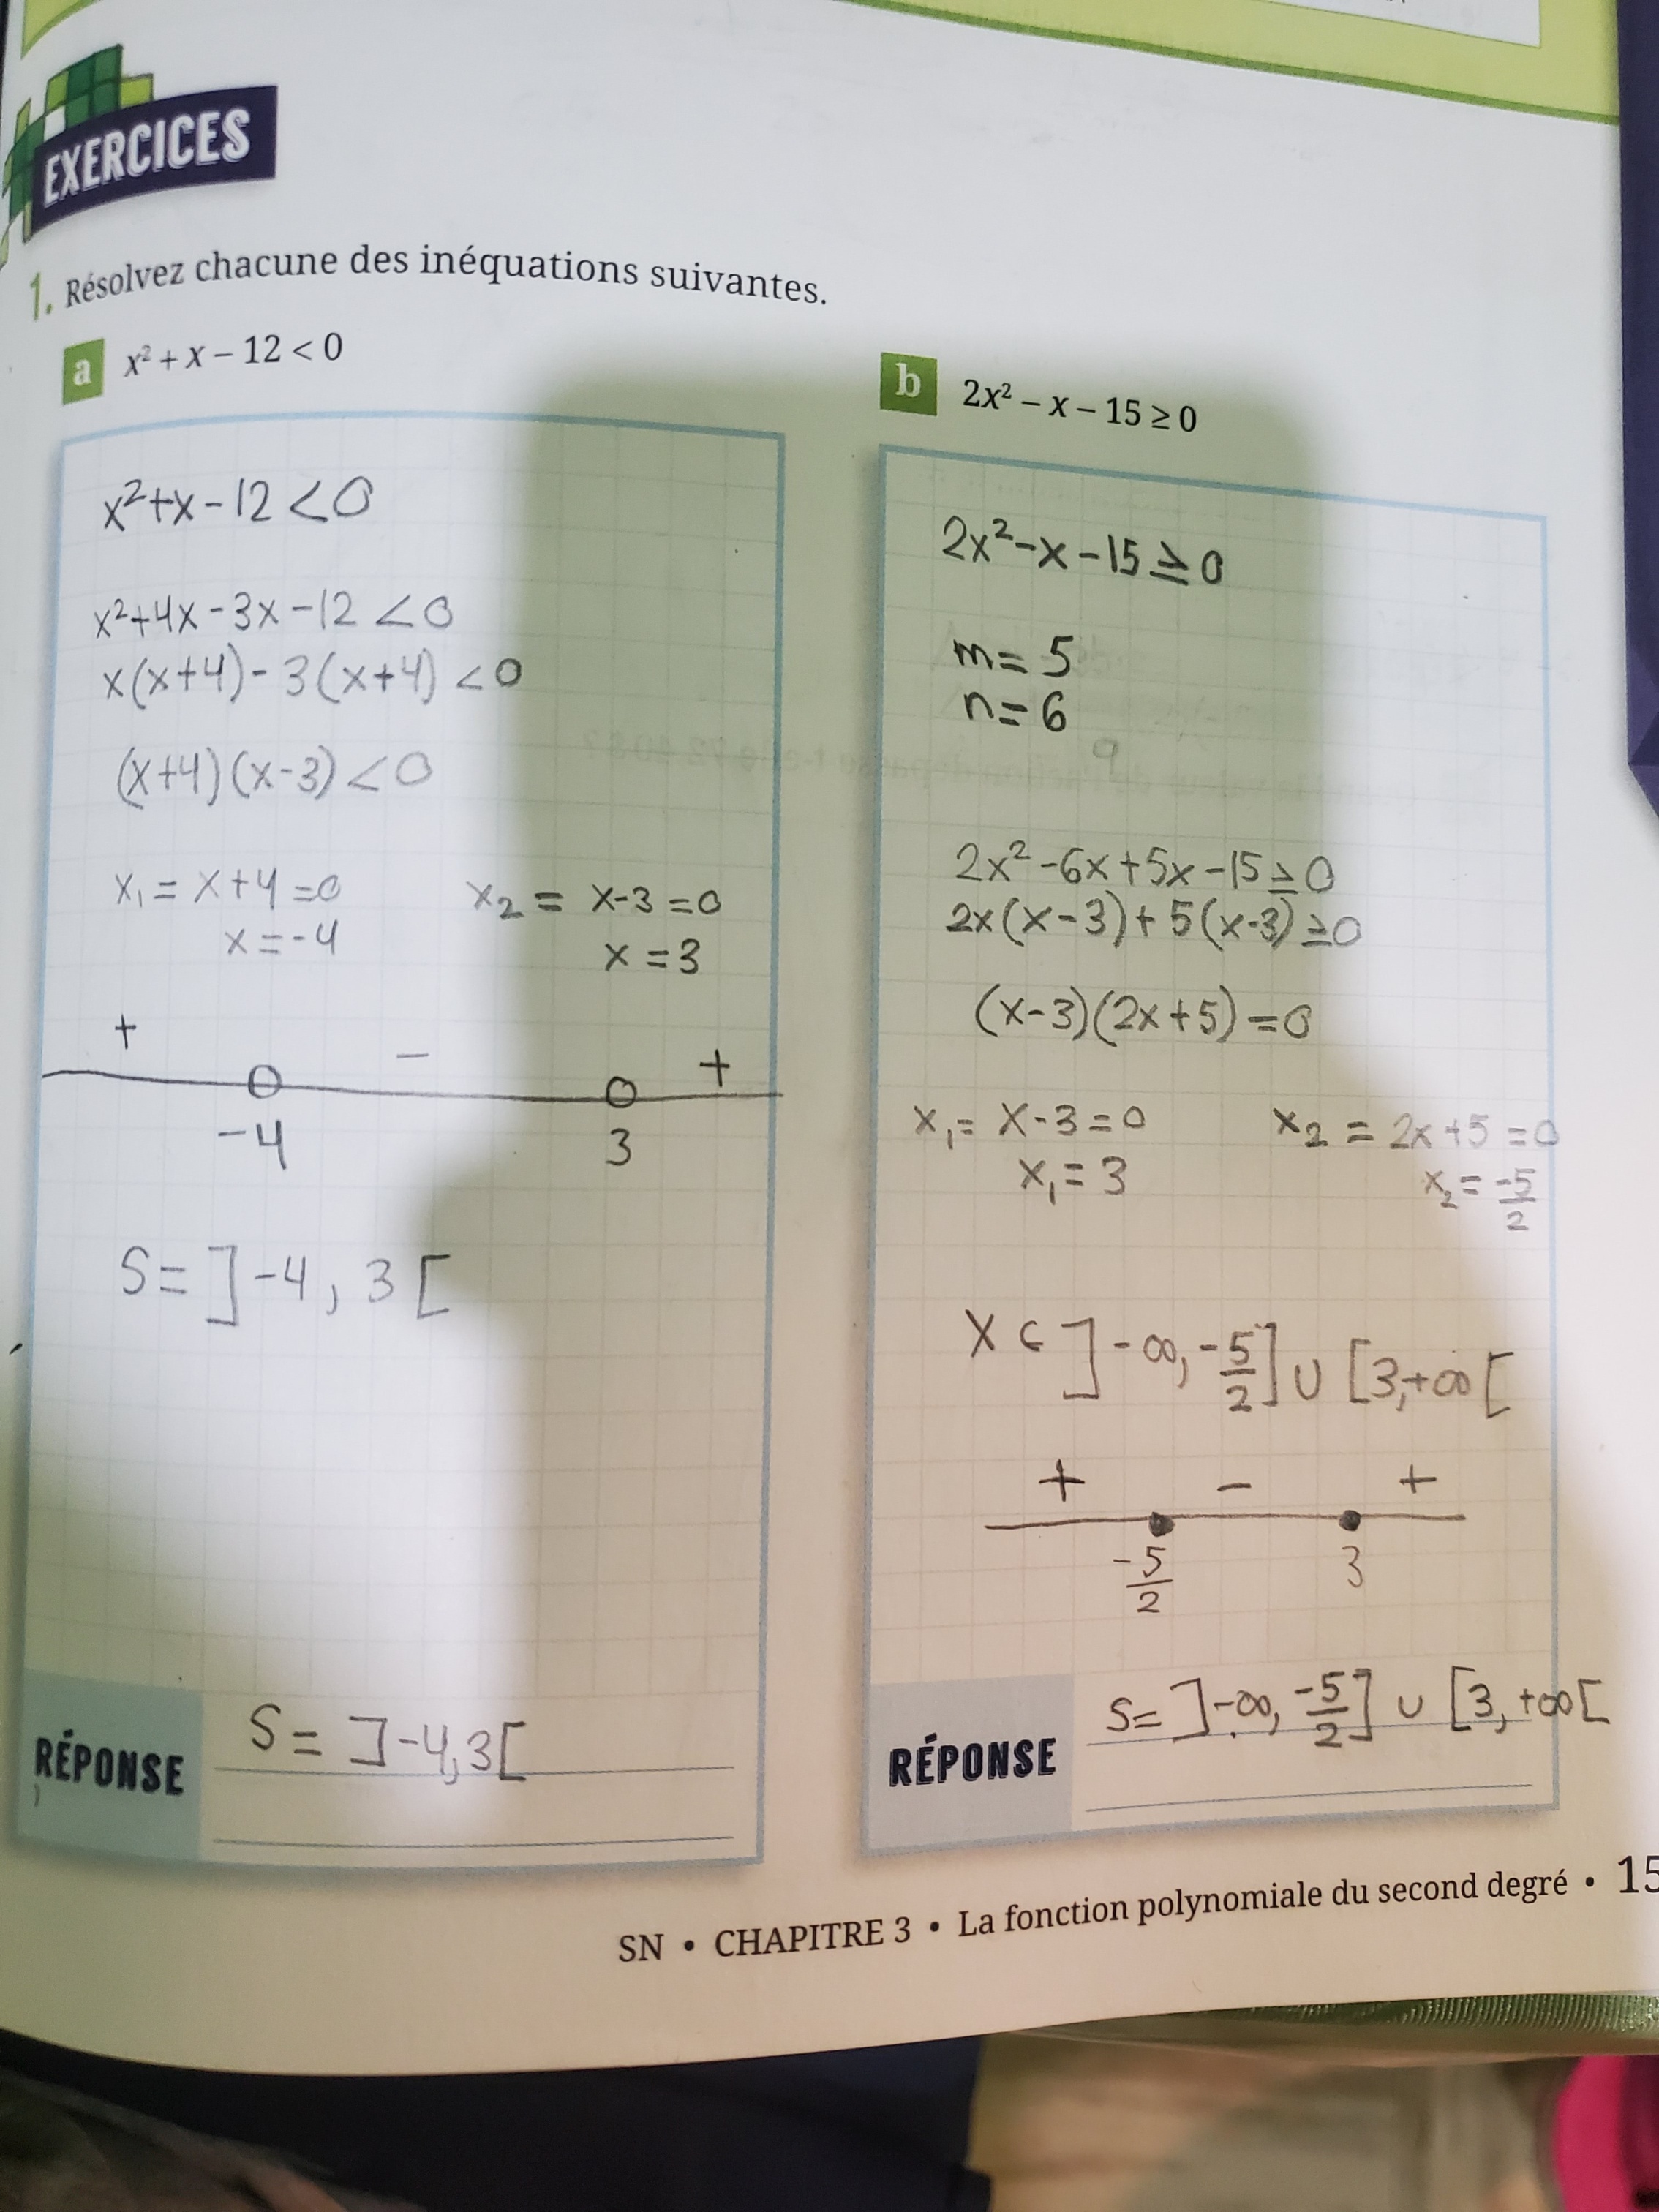 EXERCICES
1. Résolvez chacune des inéquations suivantes.
a x² + x – 12 < 0
x²+x-12 <0
x²+4x-3x-12 <0
x(x+4)-3(x+4) <0
(x+4)(x-3)<0
x₁= x+4=0 x₂= x-3=0
x=-4 x=3
+ - +
-4 3
S= ]-4, 3[
RÉPONSE S= ]-4,3[
b 2x² – x – 15 ≥ 0
2x²-x-15≥0
m= 5
n=6
2x²-6x+5x-15≥0
2x(x-3)+5(x-3)≥0
(x-3)(2x+5)=0
x₁= x-3=0 x₂= 2x+5=0
x₁=3 x₂= -5/2
x ⊂ ]-∞, -5/2] ∪ [3,+∞[
+ - +
-5/2 3
RÉPONSE S= ]-∞, -5/2] ∪ [3, +∞[
SN • CHAPITRE 3 • La fonction polynomiale du second degré • 15